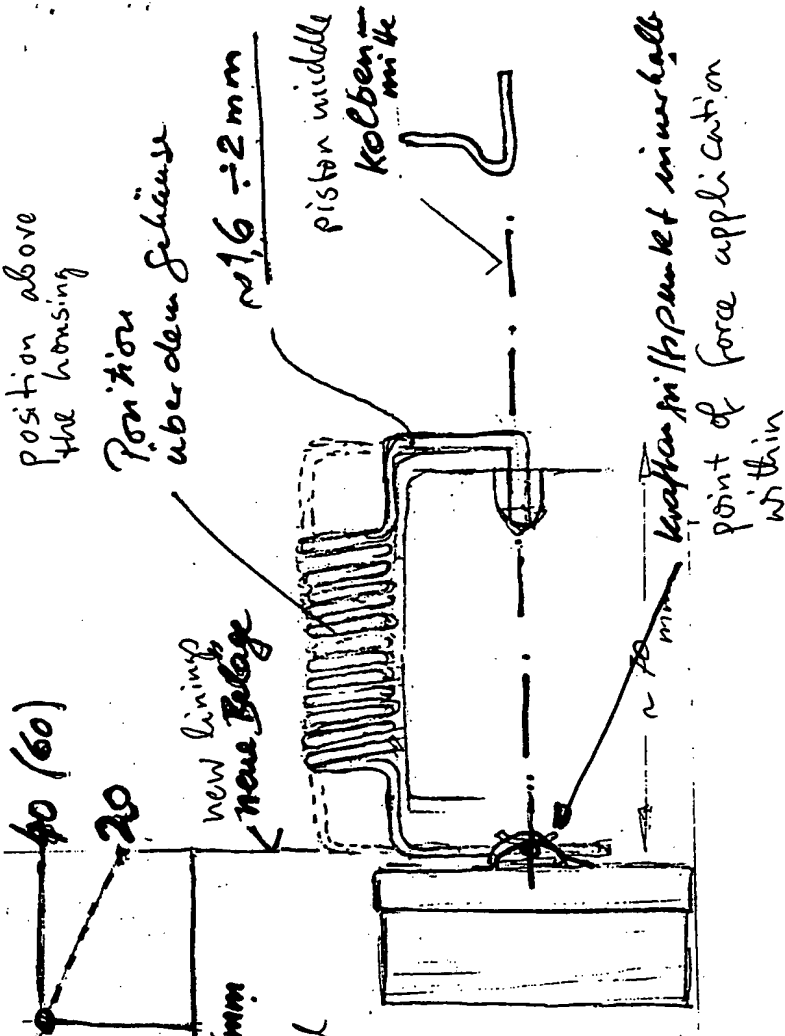 position above
the housing
Position
über dem Gehäuse
~1,6 ÷ 2 mm
piston middle
Kolben-
mitte
40 (60)
20
new linings
neue Beläge
mm
~ 70 mm
Kraftangriffspunkt innerhalb
point of force application
within